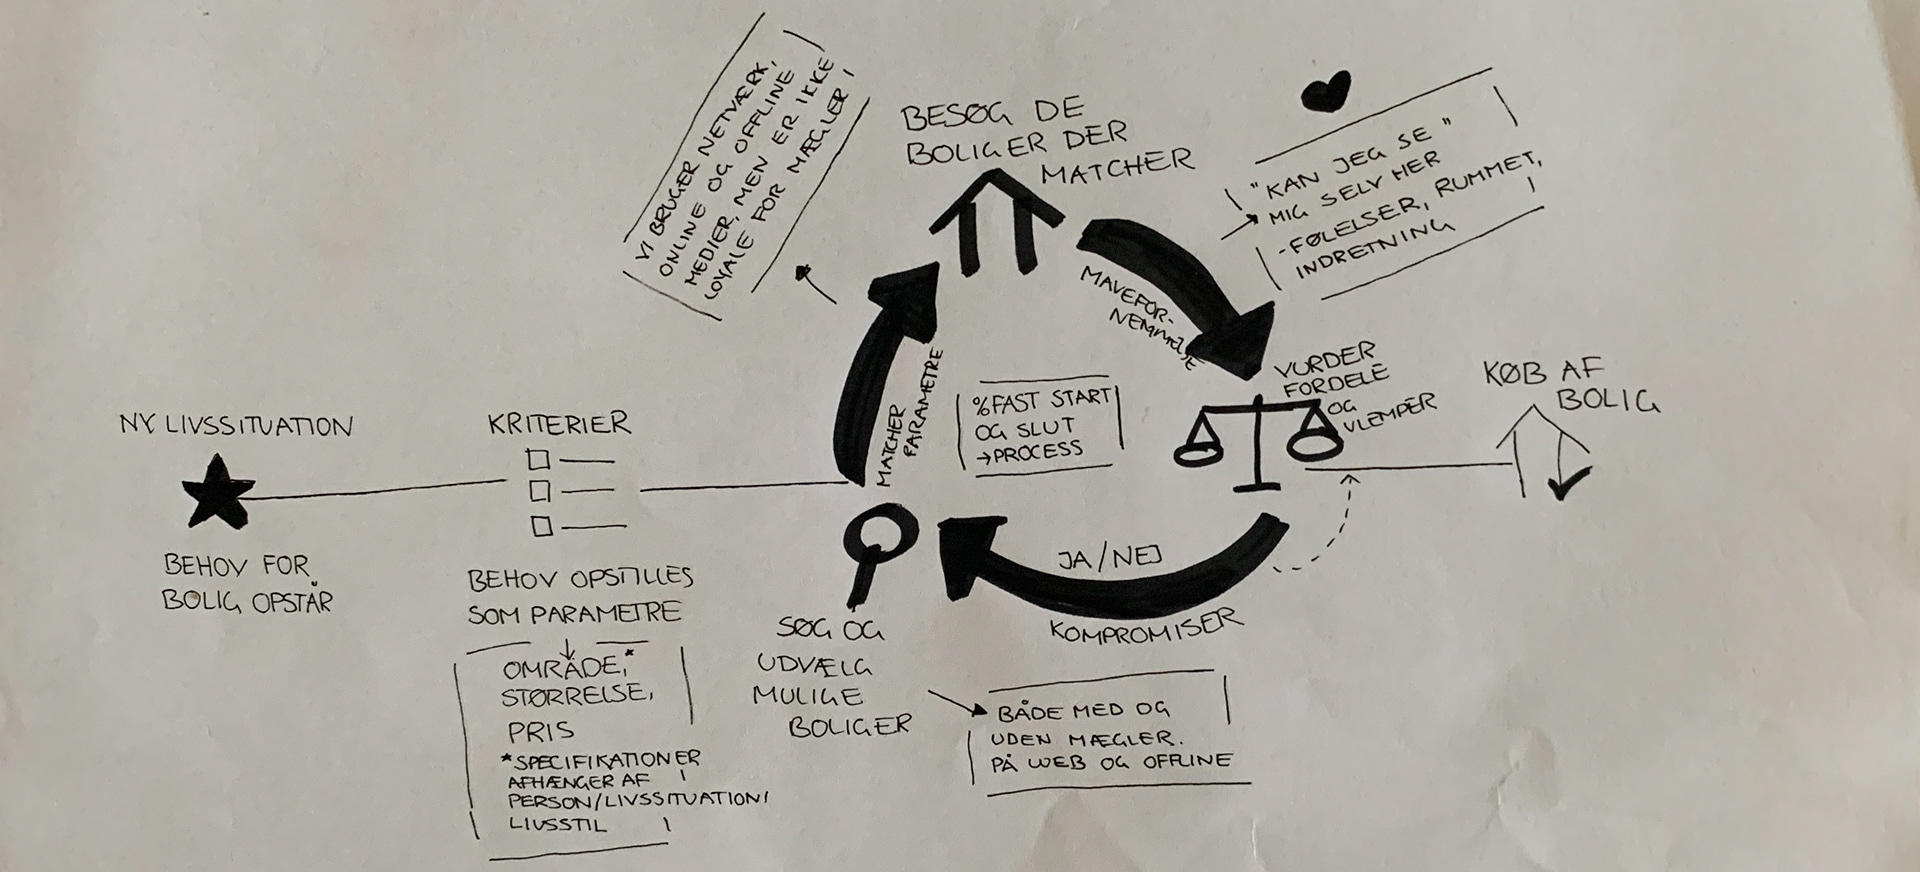 NY LIVSSITUATION
BEHOV FOR
BOLIG OPSTÅR
KRITERIER
BEHOV OPSTILLES
SOM PARAMETRE
OMRÅDE,*
STØRRELSE,
PRIS
*SPECIFIKATIONER
AFHÆNGER AF
PERSON/LIVSSITUATION/
LIVSSTIL
SØG OG
UDVÆLG
MULIGE
BOLIGER
BÅDE MED OG
UDEN MÆGLER.
PÅ WEB OG OFFLINE
MATCHER
PARAMETRE
VI BRUGER NETVÆRK,
ONLINE OG OFFLINE
MEDIER, MEN ER IKKE
LOYALE FOR MÆGLER
BESØG DE
BOLIGER DER
MATCHER
MAVEFOR-
NEMMELSE
"KAN JEG SE"
MIG SELV HER
-FØLELSER, RUMMET,
INDRETNING
%FAST START
OG SLUT
→PROCESS
VURDER
FORDELE
OG
ULEMPER
JA/NEJ
KOMPROMISER
KØB AF
BOLIG